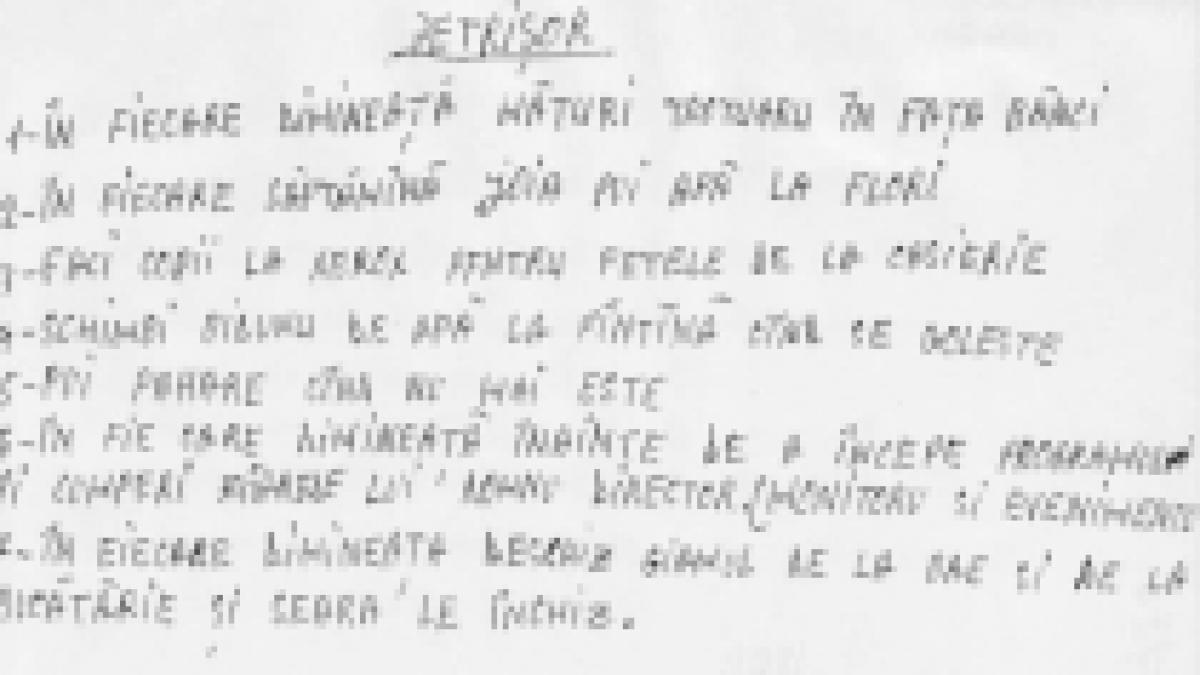 PETRIȘOR
1-ÎN FIECARE DIMINEAȚĂ MĂTURI TROTUARU ÎN FAȚA BĂNCI
2-ÎN FIECARE SĂPTĂMÎNĂ JOIA PUI APĂ LA FLORI
3-FACI COPII LA XEROX PENTRU FETELE DE LA CASIERIE
4-SCHIMBI BIDONU DE APĂ LA FÎNTÎNĂ CÎND SE GOLEȘTE
5-PUI PAHARE CÎND NU MAI ESTE
6-ÎN FIE CARE DIMINEATĂ ÎNAINTE DE A ÎNCEPE PROGRAMUL
CUMPERI ZIARELE LUI DOMNU DIRECTOR (MONITORU SI EVENIMENTU
7-ÎN FIECARE DIMINEATA DESCHIZ GEAMUL DE LA BAE SI DE LA
BUCĂTĂRIE ȘI SEARA LE ÎNCHIZ.